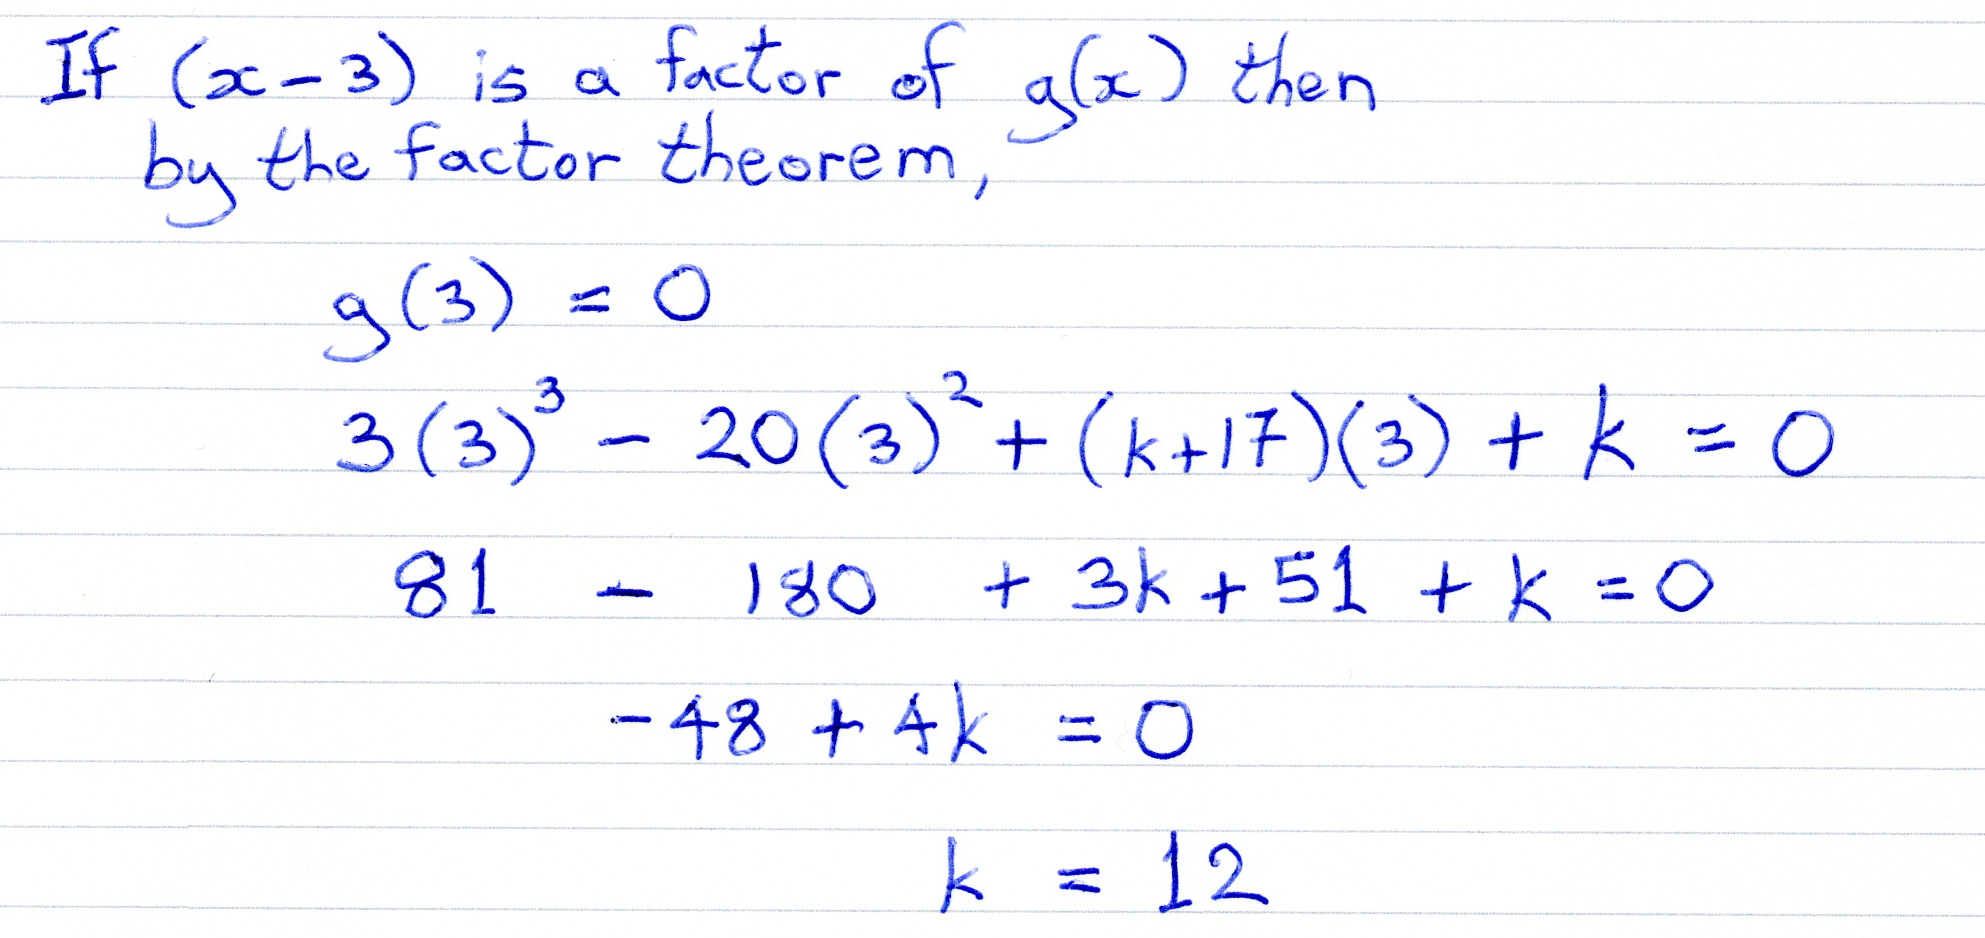 If (x-3) is a factor of g(x) then
by the factor theorem,
g(3) = 0
3(3)³ - 20(3)² + (k+17)(3) + k = 0
81 - 180 + 3k + 51 + k = 0
-48 + 4k = 0
k = 12